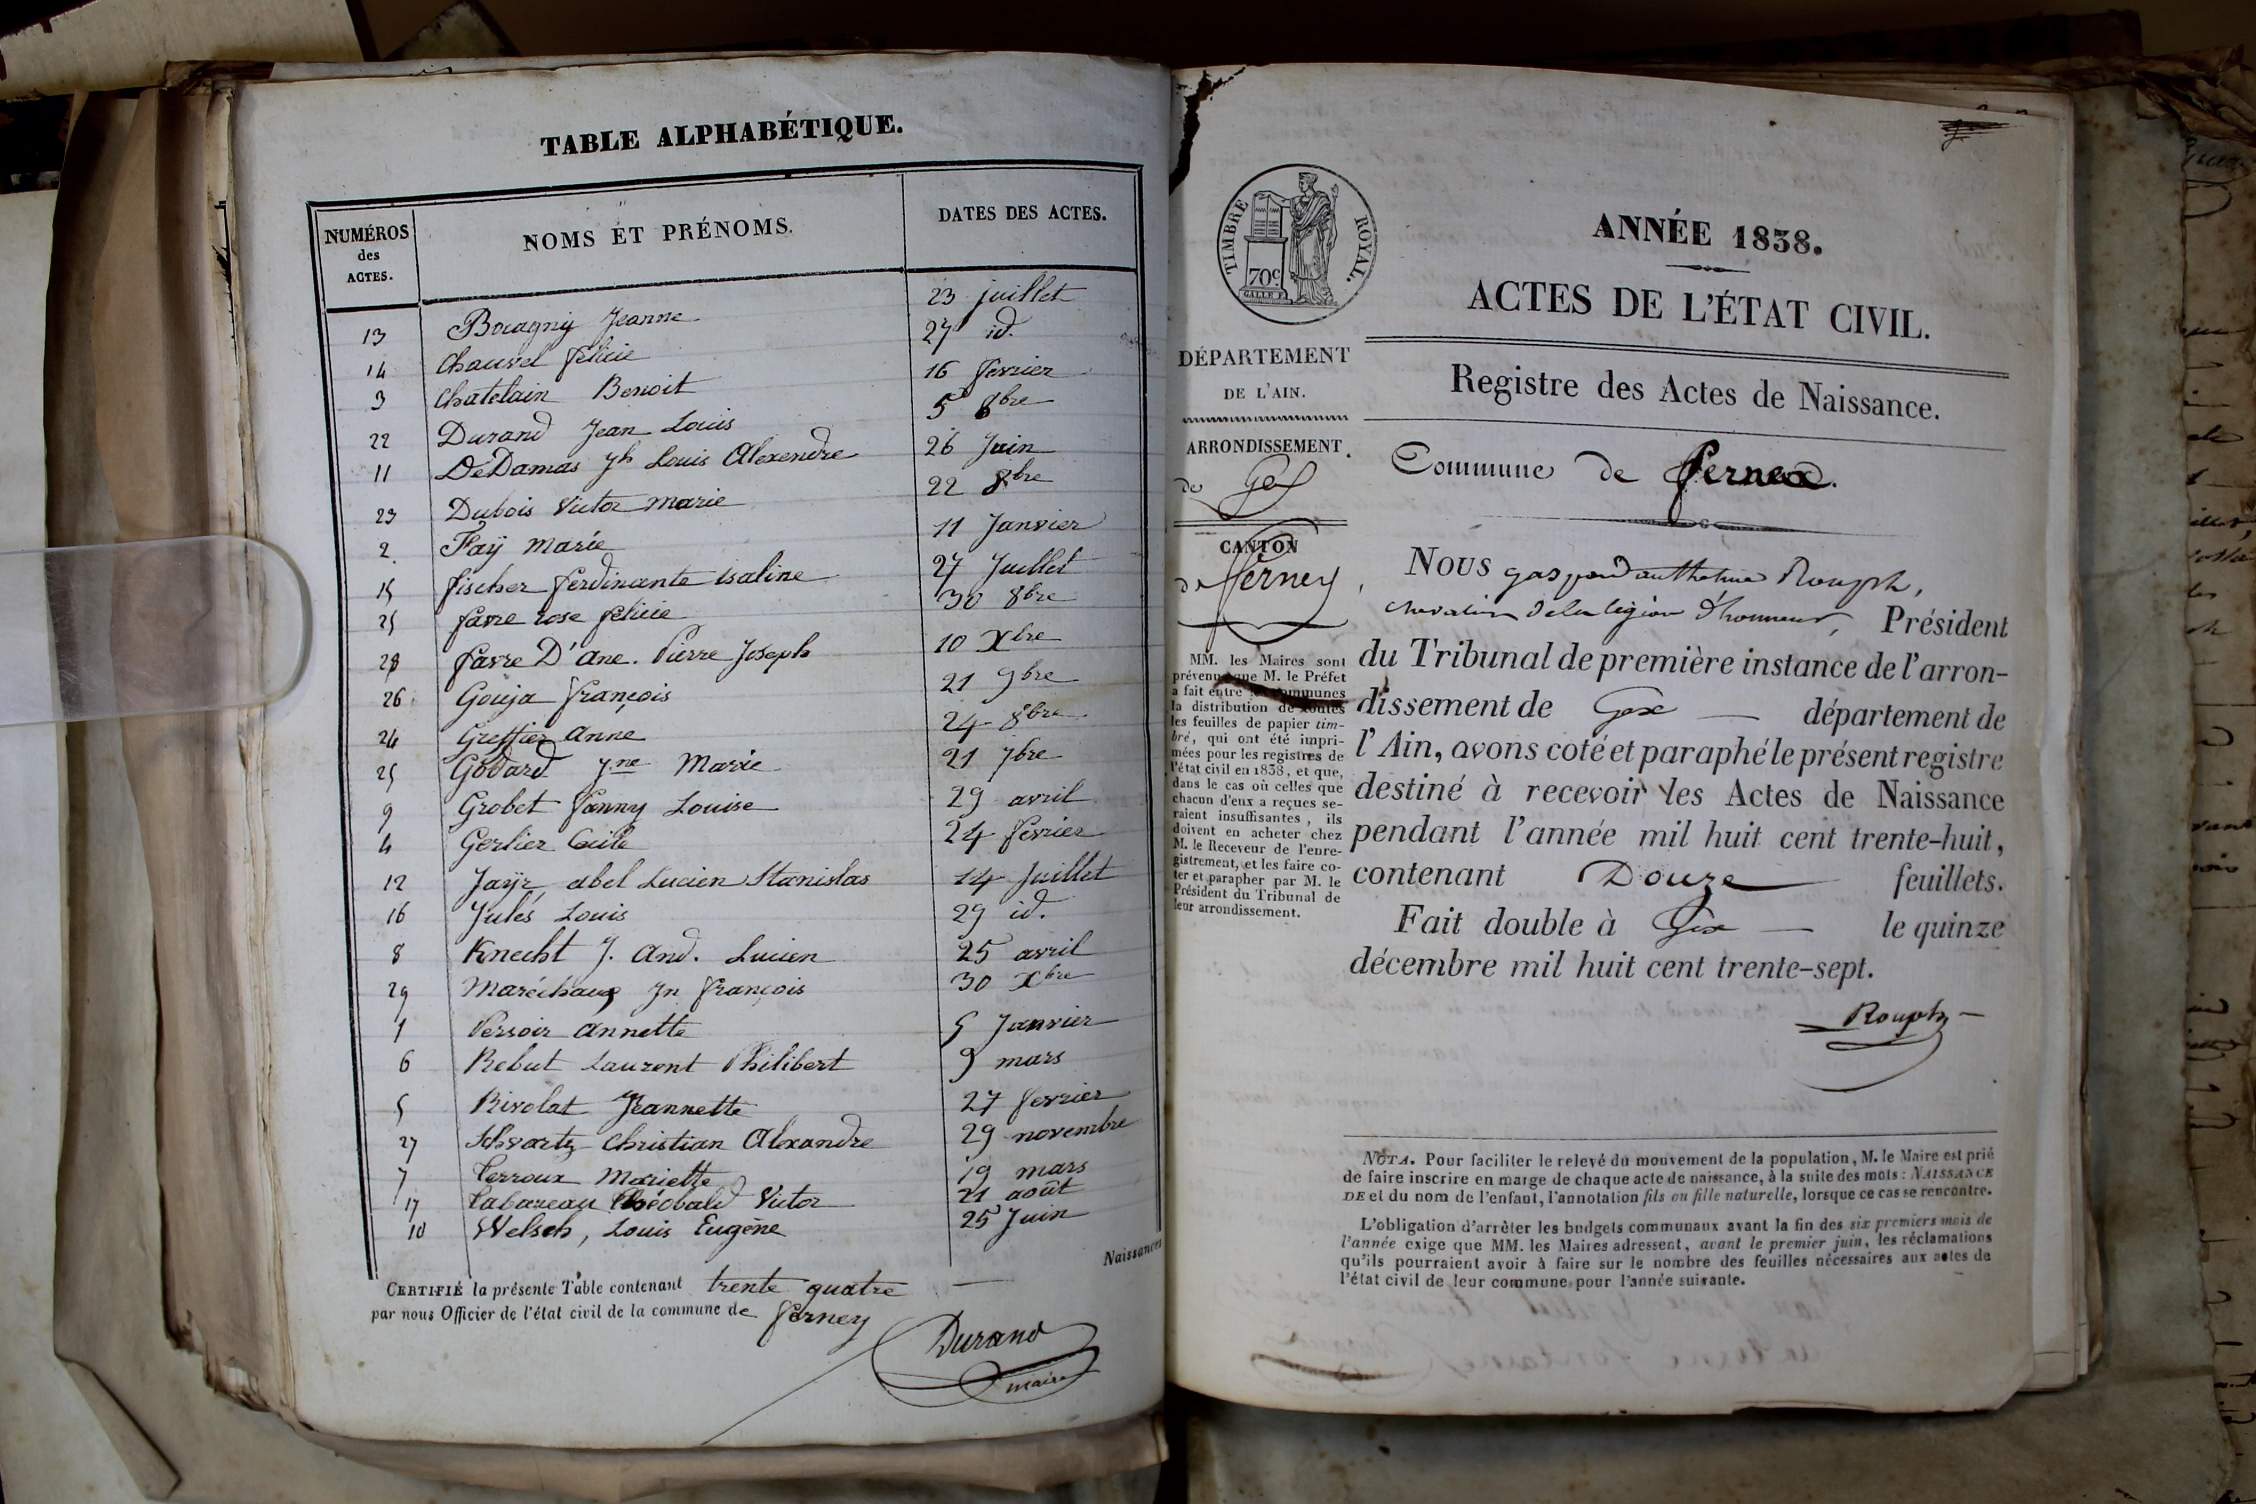 TABLE ALPHABÉTIQUE.
NUMÉROS des ACTES. NOMS ET PRÉNOMS. DATES DES ACTES.
13 Bouagny Jeanne 23 juillet
14 Chauvel félicie 27 id.
3 Chatelain Benoit 16 fevrier
22 Durand Jean Louis 5 8bre
11 DéDamas Jh Louis Alexendre 26 Juin
23 Dubois Victor Marie 22 8bre
2 Faÿ Marie 11 Janvier
15 fischer ferdinante isaline 27 Juillet
25 favre rose félicie 30 8bre
28 favre D'Ane. Pierre Joseph 10 Xbre
26 Gouja françois 21 9bre
24 Greffier Anne 24 8bre
25 Godard Jne Marie 21 7bre
9 Grobet fanny Louise 29 avril
4 Gerlier Cécile 24 fevrier
12 Jayr abel Lucien Stanislas 14 Juillet
16 Jules Louis 29 id.
8 Knecht J. And. Lucien 25 avril
29 Maréchaux Jn françois 30 Xbre
1 Persoir Annette 5 Janvier
6 Rebut Laurent Philibert 9 mars
5 Rivolat Jeannette 27 fevrier
27 Schvartz Christian Alexandre 29 novembre
7 Terroux Mariette 19 mars
17 Tabareau Théobald Victor 21 août
10 Welsch, Louis Eugène 25 Juin
Naissances
CERTIFIÉ la présente Table contenant trente quatre
par nous Officier de l'état civil de la commune de ferney
Durand
maire
TIMBRE ROYAL.
70c.
ANNÉE 1838.
ACTES DE L'ÉTAT CIVIL.
DÉPARTEMENT
DE L'AIN.
ARRONDISSEMENT
de Gex
CANTON
de ferney
MM. les Maires sont
prévenus que M. le Préfet
a fait entre les communes
la distribution de toutes
les feuilles de papier tim-
bré, qui ont été impri-
mées pour les registres de
l'état civil en 1838, et que,
dans le cas où celles que
chacun d'eux a reçues se-
raient insuffisantes, ils
doivent en acheter chez
M. le Receveur de l'enre-
gistrement, et les faire co-
ter et parapher par M. le
Président du Tribunal de
leur arrondissement.
Registre des Actes de Naissance.
Commune de Fernex.
NOUS gaspard anthelme Rouph,
chevalier de la légion d'honneur, Président
du Tribunal de première instance de l'arron-
dissement de Gex département de
l'Ain, avons coté et paraphé le présent registre
destiné à recevoir les Actes de Naissance
pendant l'année mil huit cent trente-huit,
contenant Douze feuillets.
Fait double à Gex le quinze
décembre mil huit cent trente-sept.
Rouph
NOTA. Pour faciliter le relevé du mouvement de la population, M. le Maire est prié
de faire inscrire en marge de chaque acte de naissance, à la suite des mots : NAISSANCE
DE et du nom de l'enfant, l'annotation fils ou fille naturelle, lorsque ce cas se rencontre.
L'obligation d'arrêter les budgets communaux avant la fin des six premiers mois de
l'année exige que MM. les Maires adressent, avant le premier juin, les réclamations
qu'ils pourraient avoir à faire sur le nombre des feuilles nécessaires aux actes de
l'état civil de leur commune pour l'année suivante.